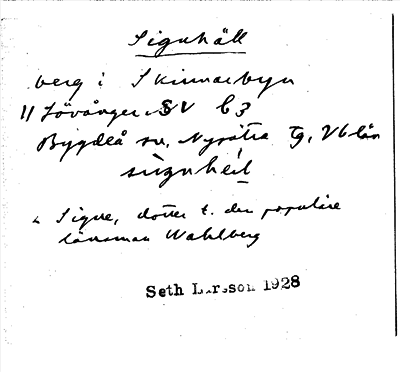 Signhäll
berg i Skinnarbyn
11 Lövånger SV C3
Bygdeå sn, Nysätra Tg, Vb län
sìgnhel
< Signe, dotter t. den populäre
länsman Wahlberg
Seth Larsson 1928